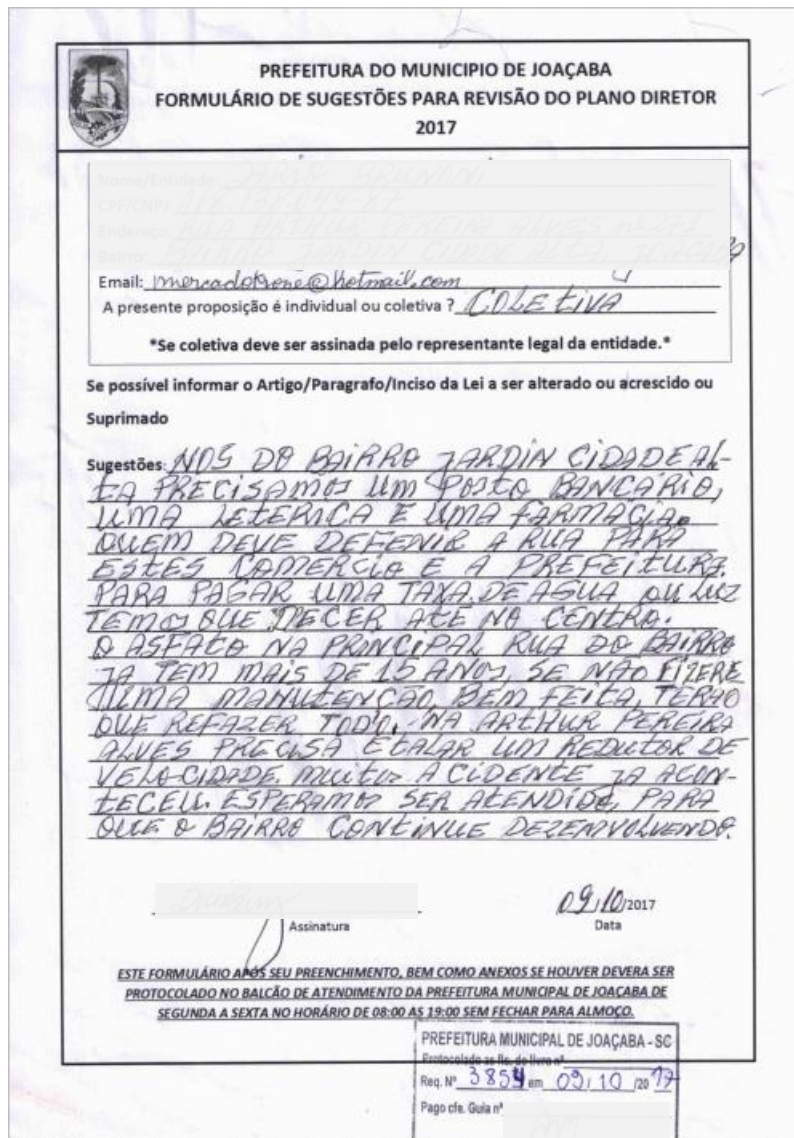 PREFEITURA DO MUNICIPIO DE JOAÇABA
FORMULÁRIO DE SUGESTÕES PARA REVISÃO DO PLANO DIRETOR
2017
Nome/Entidade:
CPF/CNPJ:
Endereço:
Bairro:
Email: mercadotrone@hotmail.com
A presente proposição é individual ou coletiva ? COLETIVA
*Se coletiva deve ser assinada pelo representante legal da entidade.*
Se possível informar o Artigo/Paragrafo/Inciso da Lei a ser alterado ou acrescido ou
Suprimado
Sugestões: NOS DO BAIRRO JARDIN CIDADE AL-
TA PRECISAMOS UM POSTO BANCARIO,
UMA LETERICA E UMA FARMACIA.
QUEM DEVE DEFENIR A RUA PARA
ESTES COMERCIO E A PREFEITURA.
PARA PAGAR UMA TAXA DE AGUA OU LUZ
TEMOS QUE DECER ATE NO CENTRO.
O ASFATO NA PRINCIPAL RUA DO BAIRRO
JA TEM MAIS DE 15 ANOS SE NÃO FIZERE
UMA MANUTENÇÃO BEM FEITA, TERÃO
QUE REFAZER TODO, NA ARTHUR PEREIRA
ALVES PRECISA ETALAR UM REDUTOR DE
VELOCIDADE. MUITOS ACIDENTE JA ACON-
TECEU. ESPERAMOS SER ATENDIDO, PARA
QUE O BAIRRO CONTINUE DEZENVOLVENDO.
09/10/2017
Assinatura
Data
ESTE FORMULÁRIO APÓS SEU PREENCHIMENTO, BEM COMO ANEXOS SE HOUVER DEVERA SER
PROTOCOLADO NO BALCÃO DE ATENDIMENTO DA PREFEITURA MUNICIPAL DE JOAÇABA DE
SEGUNDA A SEXTA NO HORÁRIO DE 08:00 AS 19:00 SEM FECHAR PARA ALMOÇO.
PREFEITURA MUNICIPAL DE JOAÇABA - SC
Protocolado as fls. do livro nº
Req. Nº 3854 em 09/10/2017
Pago cfe. Guia nº